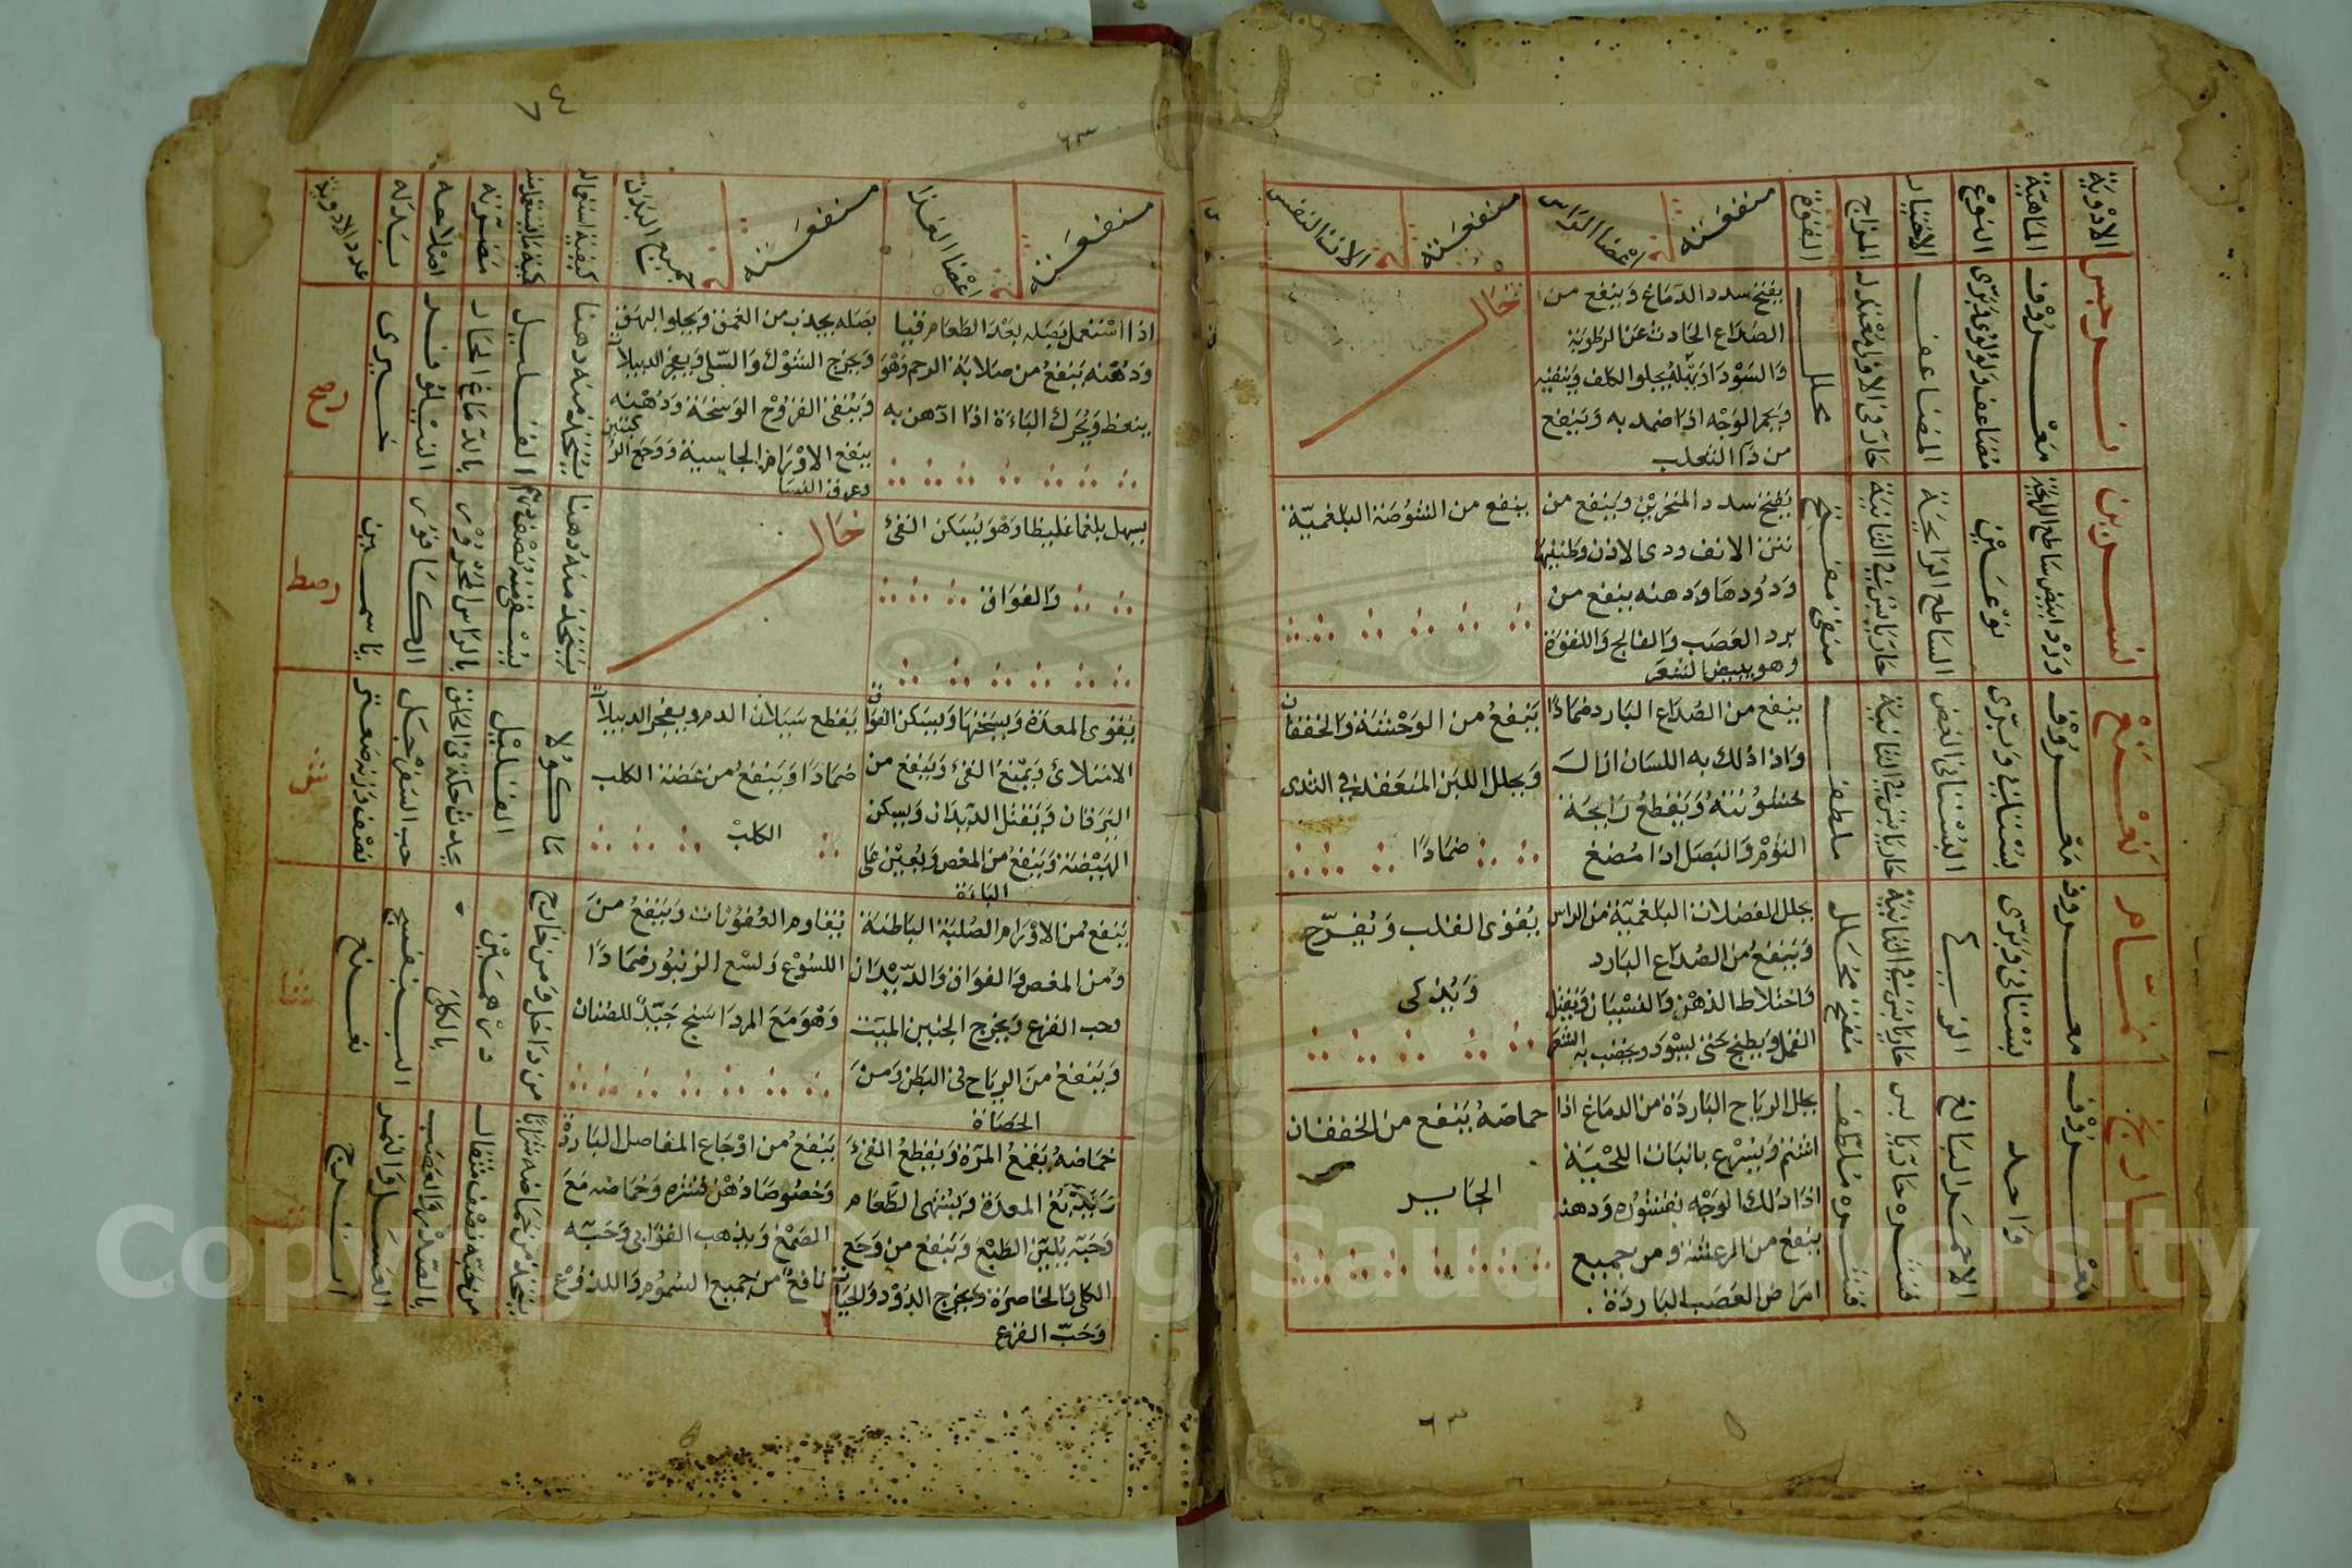 الادوية
الماهية
النوع
الاختيار
المزاج
القوة
منفعته في اعضا الراس
منفعته في الات النفس
نرجس
معروف
مضاعف ولؤلؤي وبري
المضاعف
حار في الاولى معتدل
محلل
يفتح سدد الدماغ وينفع من
الصداع الحادث عن الرطوبة
والسودا وبزره يجلو الكلف وينقيه
ويحمر الوجه اذا ضمد به وينفع
من دآ الثعلب
خال
نسرين
ورد ابيض ساطع الرايحة
نوعين
الساطع الرايحة
حار يابس في الثانية
منقي مفتح
يفتح سدد المنخرين وينفع من
نتن الانف ودوى الاذن وطنينها
ودودها ودهنه ينفع من
برد العصب والفالج واللقوة
وهو يبيض الشعر
ينفع من الشوصة البلغمية
نعنع
معروف
بستاني وبري
البستاني الغض
حار يابس في الثانية
ملطف
ينفع من الصداع البارد ضمادا
واذا دلك به اللسان ازال
خشونته ويقطع رايحة
الثوم والبصل اذا مضغ
ينفع من الوحشة والخفقان
ويحلل اللبن المنعقد في الثدى
ضمادا
نمام
معروف
بستاني وبري
حار يابس في الثانية
مفتح محلل
يحلل الفضلات البلغمية من الراس
وينفع من الصداع البارد
واختلاط الذهن والنسيان ويقتل
القمل ويطبخ حتى يسود ويخضب به الشعر
يقوى القلب ويفرح
ويذكى
نارنج
معروف
واحد
الاحمر البالغ
قشره حار يابس
قشره ملطف
يحلل الرياح الباردة من الدماغ اذا
اشتم ويسرع بانبات اللحية
اذا دلك الوجه بقشوره ودهنه
ينفع من الرعشة ومن جميع
امراض العصب الباردة
حماضه ينفع من الخفقان
الحار
٦٣
٦٣
منفعته في اعضا الغذا
منفعته في جميع البدن
كيفية استعماله
كمية ما يستعمل منه
مضرته
اصلاحه
بدله
عدد الادوية
اذا استعمل بصله بعد الطعام قيا
ودهنه ينفع من صلابة الرحم وهو
ينعظ ويحرك الباءة اذا ادهن به
بصله يجذب من العمق ويجلو البهق
ويخرج الشوك والسلى ويفجر الدبيلات
وينقى القروح الوسخة ودهنه
ينفع الاورام الجاسية ووجع
وعرق النسا
يتخذ منه دهنا
القليل
بالدماغ الحار
النيلوفر
خيرى
يسهل بلغما غليظا وهو يسكن القئ
والفواق
خال
يتخذ منه دهنا
يستقى منه نصف درهم
بالراس المحرور
الكافور
ياسمين
يقوى المعدة ويسخنها ويسكن الفواق
الامتلائ ويمنع القئ وينفع من
اليرقان ويقتل الديدان ويسكن
الهيضة وينفع من المغص ويعين على
الباءة
يقطع سيلان الدم ويفجر الدبيلات
ضمادا وينفع من عضة الكلب
الكلب
ماكولا
القليل
يحدث حكة في الحلق
حب السفرجل
نصف وزنه صعتر
ينفع من الاورام الصلبة الباطنة
ومن المغص والفواق والديدان
وحب القرع ويخرج الجنين الميت
وينفع من الرياح في البطن ومن
الحصاة
يقاوم العفونات وينفع من
اللسوع ولسع الزنبور ضمادا
وهو مع المرداسنج جيد للصنان
من داخل ومن خارج
درهمين
بالكلى
البنفسج
نعنع
حماضه يقمع المرة ويقطع القئ
ويدبغ المعدة ويشهى الطعام
وحبه يلين الطبع وينفع من وجع
الكلى والخاصرة ويخرج الدود والحيات
وحب القرع
ينفع من اوجاع المفاصل الباردة
وخصوصا دهن قشره وحماضه مع
الصمغ ويذهب القوابي وحبه
نافع من جميع السموم واللدوغ
يتخذ من حماضه شرابا
من حبه نصف مثقال
بالصدر والعصب
العسل والتمر
اترج
Copyright © King Saud University